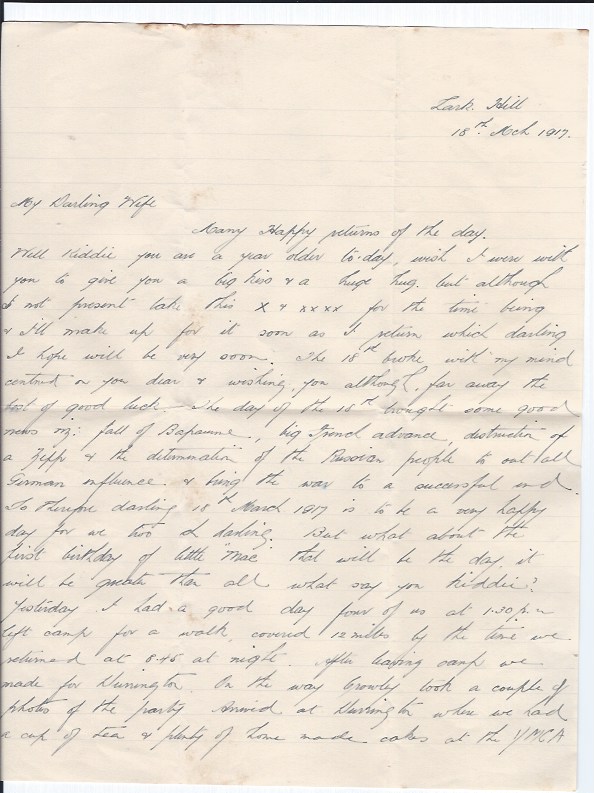 Lark Hill
18th Mch 1917.
My Darling Wife
Many Happy returns of the day.
Well Kiddie you are a year older to-day, wish I were with
you to give you a big kiss & a huge hug. but although
I not present take this X & xxxx for the time being
& I'll make up for it soon as I return which darling
I hope will be very soon. The 18th broke with my mind
centred on you dear & wishing you although far away the
best of good luck. The day of the 18th brought some good
news viz: fall of Bapaume, big French advance, distruction of
a Zepp & the determination of the Russian people to out all
German influence & bring the war to a successful end.
So therefore darling 18th March 1917 is to be a very happy
day for we two eh darling. But what about the
first birthday of little "Mac" that will be the day, it
will be greater than all what say you Kiddie?
Yesterday I had a good day four of us at 1.30 p.m
left camp for a walk, covered 12 miles by the time we
returned at 8.45 at night. After leaving camp we
made for Durrington. On the way Crowley took a couple of
photos of the party. Arrived at Durrington where we had
a cup of tea & plenty of home made cakes at the YMCA